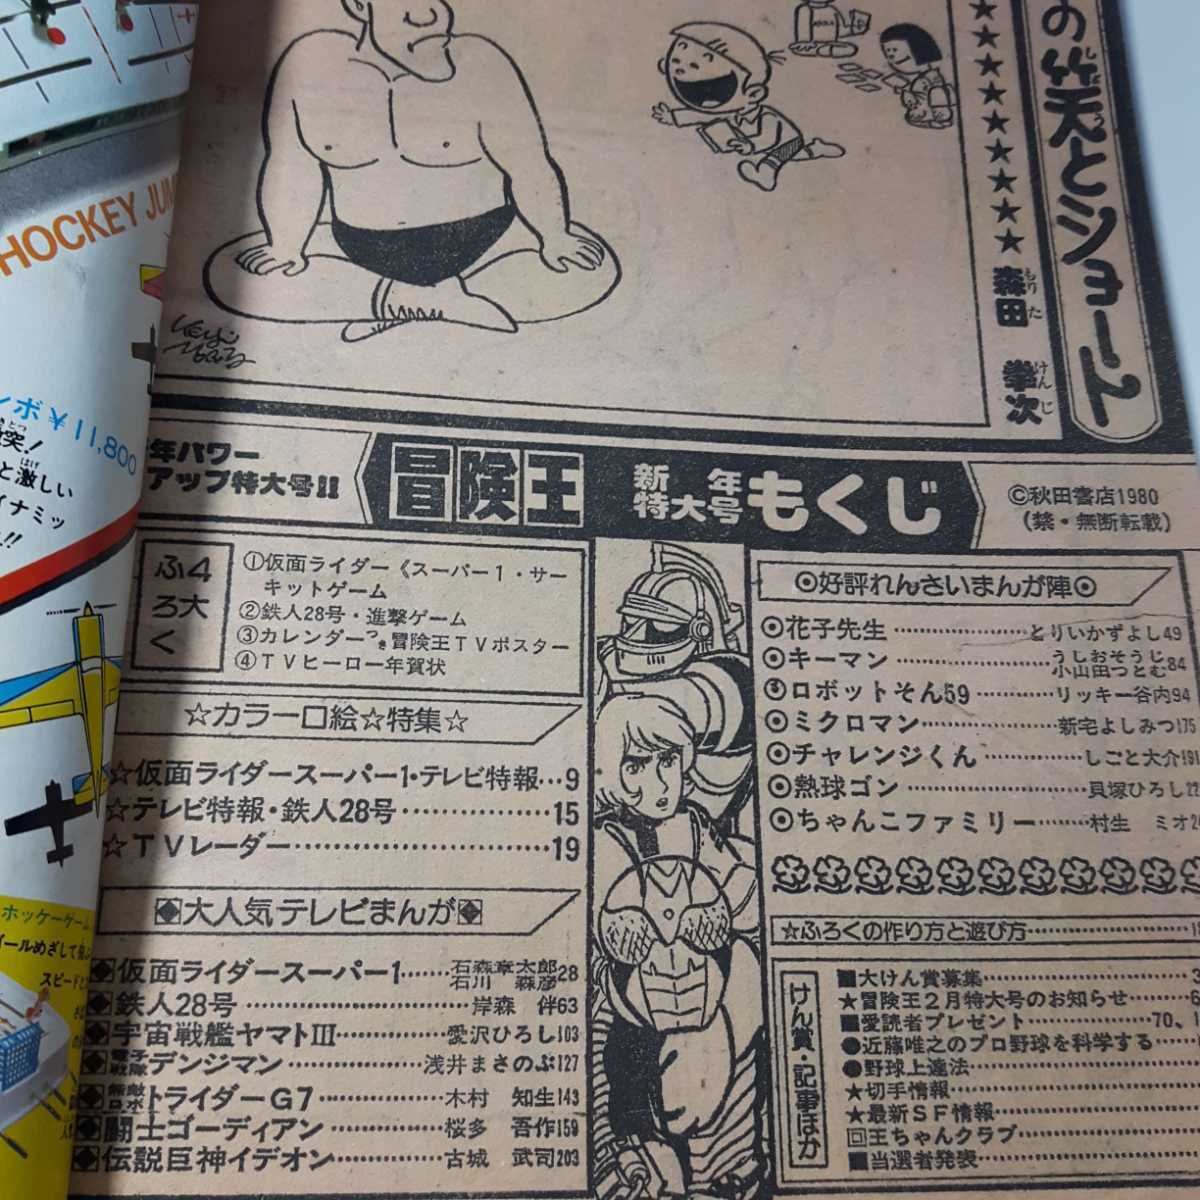 の笑とショート
★★★★★★★★★
森田 拳次
もり た けん じ
HOCKEY JUM
ンボ¥11,800
突!
と激しい
イナミッ
!!
ホッケーゲーム
ールめざして
スピード
年パワー
アップ特大号!!
冒険王
新年
特大号
もくじ
©秋田書店1980
(禁・無断転載)
4大
ふろく
①仮面ライダー《スーパー1・サー
キットゲーム
②鉄人28号・進撃ゲーム
③カレンダーつき冒険王TVポスター
④TVヒーロー年賀状
☆カラー口絵☆特集☆
☆仮面ライダースーパー1・テレビ特報…9
☆テレビ特報・鉄人28号……………15
☆TVレーダー……………………19
◆大人気テレビまんが◆
◆仮面ライダースーパー1……石森章太郎 石川森彦28
◆鉄人28号……………………岸森 伴63
◆宇宙戦艦ヤマトIII…………愛沢ひろし103
◆電子戦隊デンジマン…………浅井まさのぶ127
◆無敵ロボトライダーG7…………木村 知生143
◆闘士ゴーディアン…………桜多 吾作159
◆伝説巨神イデオン…………古城 武司203
◎好評れんさいまんが陣◎
◎花子先生……………とりいかずよし49
◎キーマン……………うしおそうじ 小山田つとむ84
◎ロボットそん59…………リッキー谷内94
◎ミクロマン……………新宅よしみつ175
◎チャレンジくん…………しごと大介191
◎熱球ゴン……………貝塚ひろし22
◎ちゃんこファミリー………村生 ミオ2
☆ふろくの作り方と遊び方……………1
けん賞・記事ほか
■大けん賞募集……………3
★冒険王2月特大号のお知らせ………
■愛読者プレゼント……………70、1
●近藤唯之のプロ野球を科学する……
●野球上達法……………
★切手情報……………
★最新SF情報……………
回王ちゃんクラブ……………
■当選者発表……………